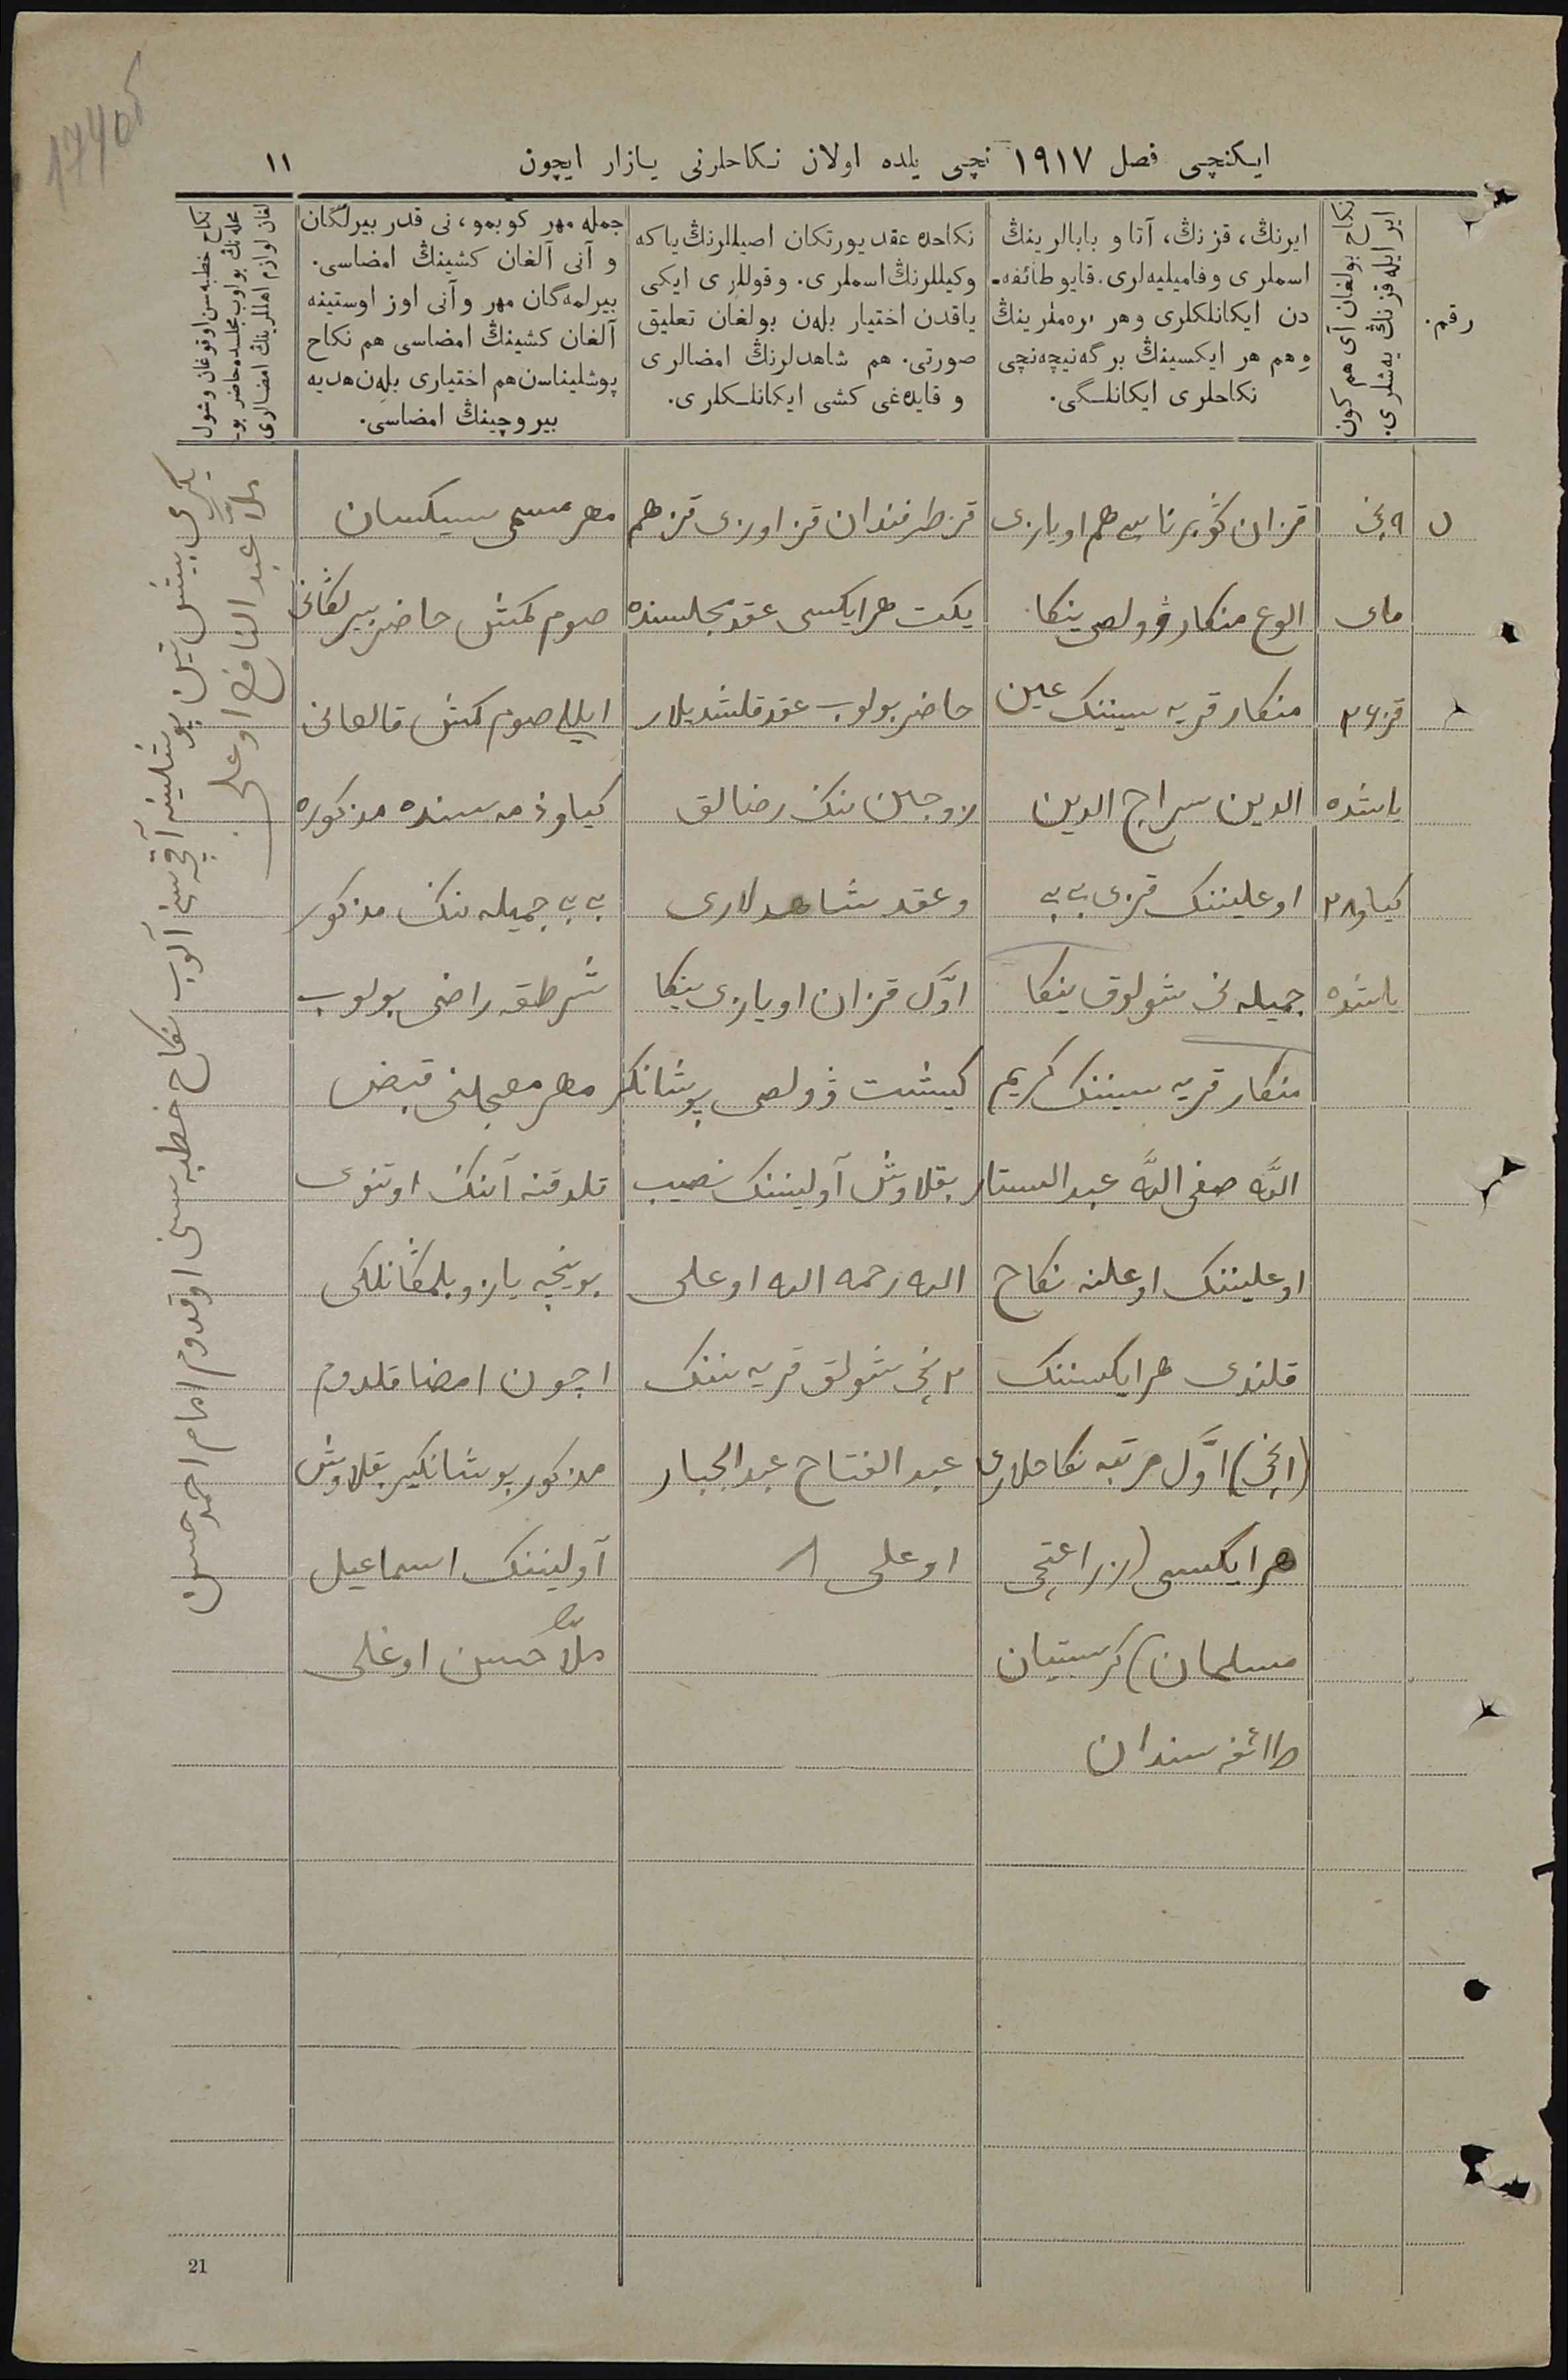 1740б
ایکنچی فصل ۱۹۱۷ نچی یلده اولان نکاحلرنی یازار ایچون
۱۱
رقم.
نکاح بولغان آی هم کون
ایر ایله قزنڭ یه‌شلری.
ایرنڭ، قزنڭ، آتا و بابالرینڭ
اسملری و فامیلیه‌لری. قایو طائفه‌-
دن ایکانلکلری وهر
هم هر ایکسینڭ برگه نیچه‌نچی
نکاحلری ایکانلگی.
نکاحده عقد یورتکان اصیللرنڭ یا که
وکیللرنڭ اسملری. وقوللری ایکی
یاقدن اختیار بله‌ن بولغان تعلیق
صورتی. هم شاهدلرنڭ امضالری
و قایده‌غی کشی ایکانلکلری.
جمله مهر کوبمو، نی قدر بیرلگان
و آنی آلغان کشینڭ امضاسی.
بیرلمه‌گان مهر و آنی اوز اوستینه
آلغان کشینڭ امضاسی هم نکاح
پوشلیناسن هم اختیاری بله‌ن هدیه
بیروچینڭ امضاسی.
نکاح خطبه‌سن اوقوغان وشول
محله‌نڭ بولوب مجلسده حاضر بو-
لغان لوازم اهللرینڭ امضالری
۵
۹ نچی
مای
قز ۲۶
یاشده
کیاو ۲۸
یاشده
قزان گوبرناسی هم اویازی
الوغ منکار وولصی ینکا
منکار قریه سیننک عین
الدین سراج الدین
اوغلیننک قزی بی بی
جمیله نی شولوق ینکا
منکار قریه سیننک کریم
الله صفی الله عبد الستار
اوغلیننک اوغلنه نکاح
قلندی هر ایکسننک
(۱نچی) اوّل مرتبه نکاحلاری
هر ایکسی (زراعتچی
مسلمان) کرستیان
طائفه سندان
قز طرفندان قز اوزی قز هم
یکت هر ایکسی عقد مجلسنده
حاضر بولوب عقد قلشدیلار
زوجین ننک رضالق
وعقد شاهدلاری
اوّل قزان اویازی ینکا
کیشت وولصی پوشانکر
بقلاوش آولیننک نصیب
الله رحمه الله اوغلی
۲ نچی شولق قریه ننک
عبد الفتاح عبد الجبار
اوغلی
مهر مسمی سیکسان
صوم کمش حاضر بیرلگانی
ایللی صوم کمش قالغانی
کیاو ذمه سنده مذکوره
بی بی جمیله ننک مذکور
شرطقه راضی بولوب
مهر معجلنی قبض
قلدقنه آننک اوتنوی
بوینچه یازو بلمگانلکی
اچون امضا قلدوم
مذکور پوشانکیر بقلاوش
آولیننک اسماعیل
ملّا حسن اوغلی
یکرمی بیش تین پوشلینه آقچه سنی آلوب نکاح خطبه سنی اوقدوم امام احمد حسن
ملّا عبد النافع اوغلی
21